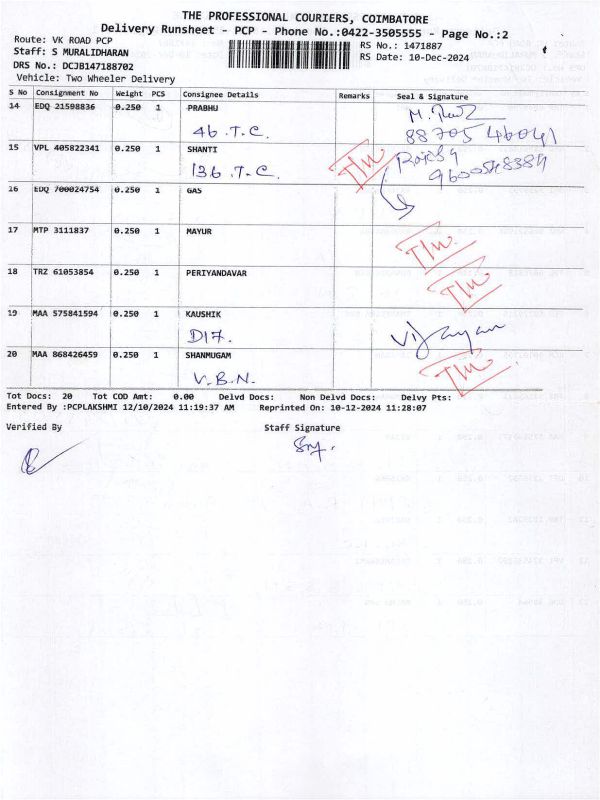 THE PROFESSIONAL COURIERS, COIMBATORE
Delivery Runsheet - PCP - Phone No.:0422-3505555 - Page No.:2
Route: VK ROAD PCP RS No.: 1471887
Staff: S MURALIDHARAN RS Date: 10-Dec-2024
DRS No.: DCJB147188702
Vehicle: Two Wheeler Delivery
S No Consignment No Weight PCS Consignee Details Remarks Seal & Signature
14 EDQ 21598836 0.250 1 PRABHU
46 .T.C. 88705 46041
15 VPL 405822341 0.250 1 SHANTI
136 .T.C. 9600548384
16 EDQ 700024754 0.250 1 GAS
17 MTP 3111837 0.250 1 MAYUR
18 TRZ 61053854 0.250 1 PERIYANDAVAR
19 MAA 575841594 0.250 1 KAUSHIK
D17. Vijayan
20 MAA 868426459 0.250 1 SHANMUGAM
V.B.N.
Tot Docs: 20 Tot COD Amt: 0.00 Delvd Docs: Non Delvd Docs: Delvy Pts:
Entered By :PCPLAKSHMI 12/10/2024 11:19:37 AM Reprinted On: 10-12-2024 11:28:07
Verified By Staff Signature